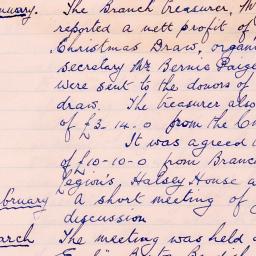 The Branch treasurer, Mr
reported a nett profit of
Christmas Draw, organ
secretary Mr Bernie Paige
were sent to the donors of
draw. The treasurer also
of £3-14-0 from the
It was agreed
of £10-10-0 from Branc
Legion's, Halsey House a
bruary A short meeting of
discussion
arch The meeting was held